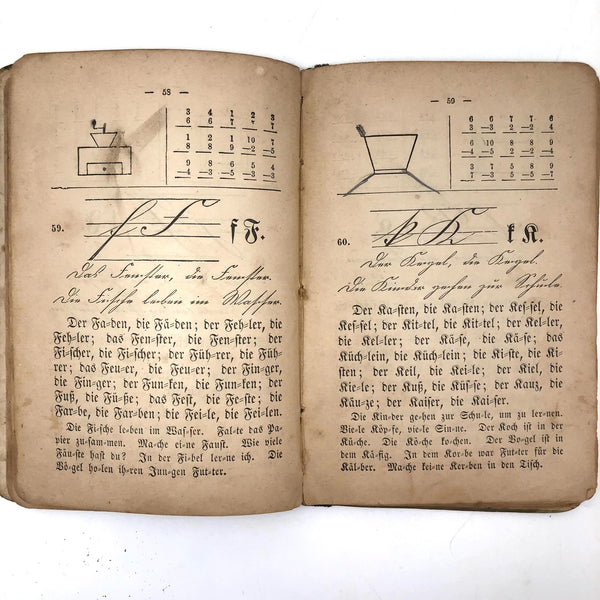 — 58 —
3 4 1 2 3
6 6 7 7 7
1 2 1 10 7
8 8 9 –2 –5
9 8 6 5 4
–4 –3 –5 –4 –3
59. f F f F.
Das Fenster, die Fenster.
Die Fische leben im Wasser.
Der Fa=den, die Fä=den; der Feh=ler, die
Feh=ler; das Fen=ster, die Fen=ster; der
Fi=scher, die Fi=scher; der Füh=rer, die Füh=
rer; das Feu=er, die Feu=er; der Fin=ger,
die Fin=ger; der Fun=ken, die Fun=ken; der
Fuß, die Fü=ße; das Fest, die Fe=ste; die
Far=be, die Far=ben; die Fei=le, die Fei=len.
Die Fi=sche le=ben im Was=ser. Fal=te das Pa=
pier zu=sam=men. Ma=che ei=ne Faust. Wie viele
Fäu=ste hast du? In der Fi=bel ler=ne ich. Die
Vö=gel ho=len ih=ren Jun=gen Fut=ter.
— 59 —
6 6 7 7 6
–3 –3 –2 –2 –4
6 10 8 8 9
–2 –4 –3 –4 –5
3 7 5 8 9
7 –3 5 –4 –7
60. k K k K.
Der Kegel, die Kegel.
Die Kinder gehen zur Schule.
Der Ka=sten, die Ka=sten; der Kes=sel, die
Kes=sel; der Kit=tel, die Kit=tel; der Kel=ler,
die Kel=ler; der Kä=se, die Kä=se; das
Küch=lein, die Küch=lein; die Ki=ste, die Ki=
sten; der Keil, die Kei=le; der Kiel, die
Kie=le; der Kuß, die Küs=se; der Kauz, die
Käu=ze; der Kaiser, die Kai=ser.
Die Kin=der ge=hen zur Schu=le, um zu ler=nen.
Vie=le Kö=pfe, vie=le Sin=ne. Der Koch ist in der
Kü=che. Die Kö=che ko=chen. Der Vo=gel ist in
dem Kä=fig. In dem Kor=be war Fut=ter für die
Käl=ber. Ma=che kei=ne Ker=ben in den Tisch.